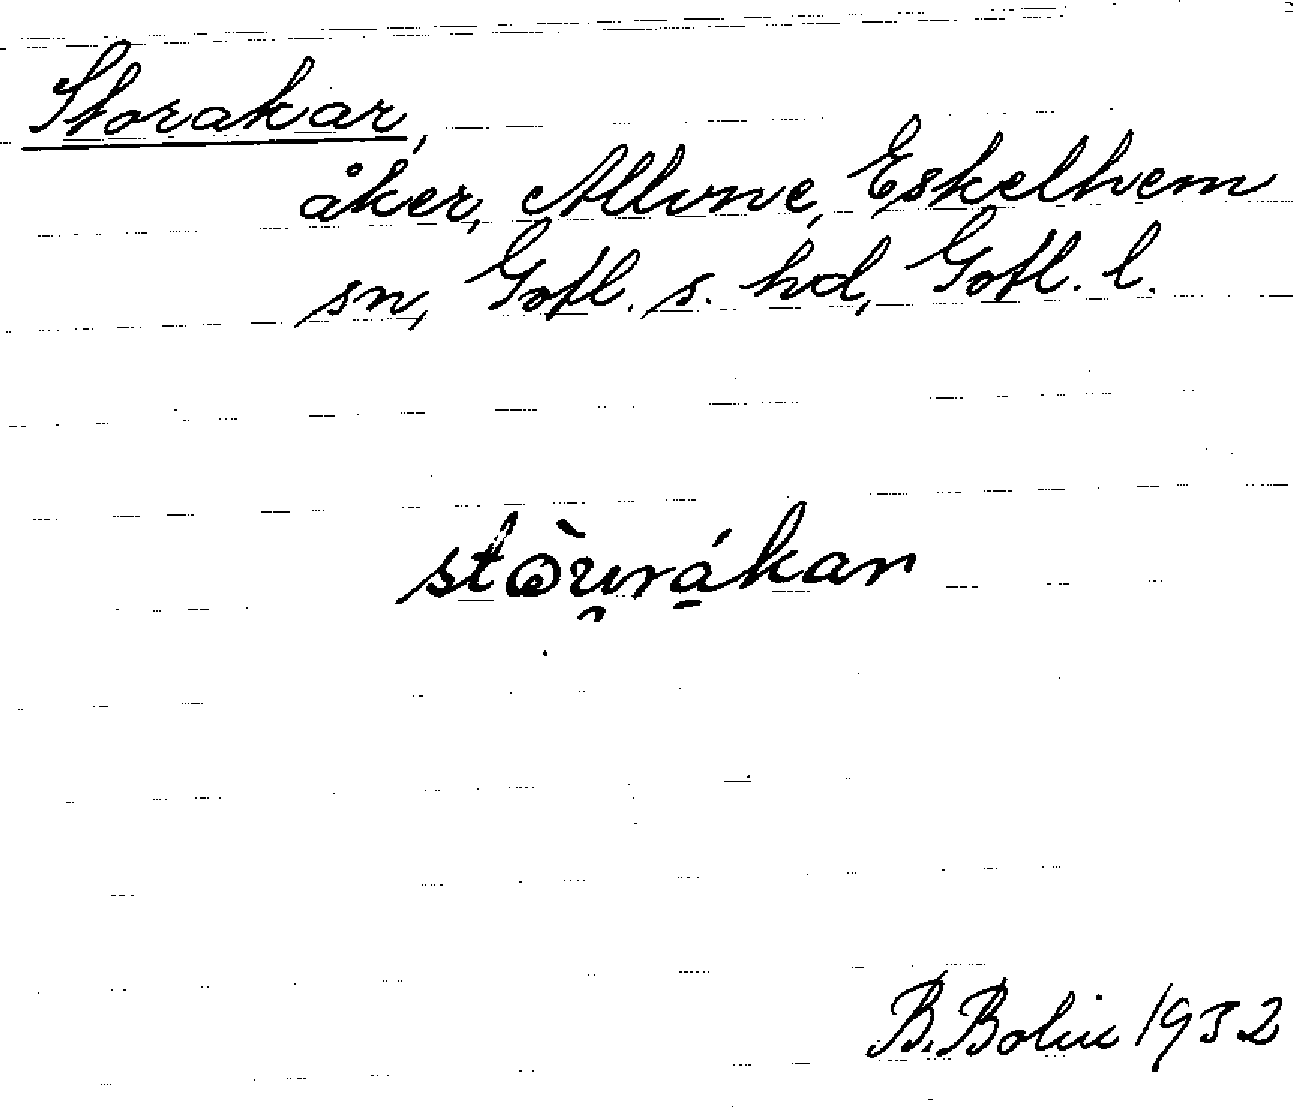 Storakar,
åker, Allvne, Eskelhem
sn, Gotl. s. hd, Gotl. l.
stɷ̀u̯rá̱kar
B. Bolin 1932